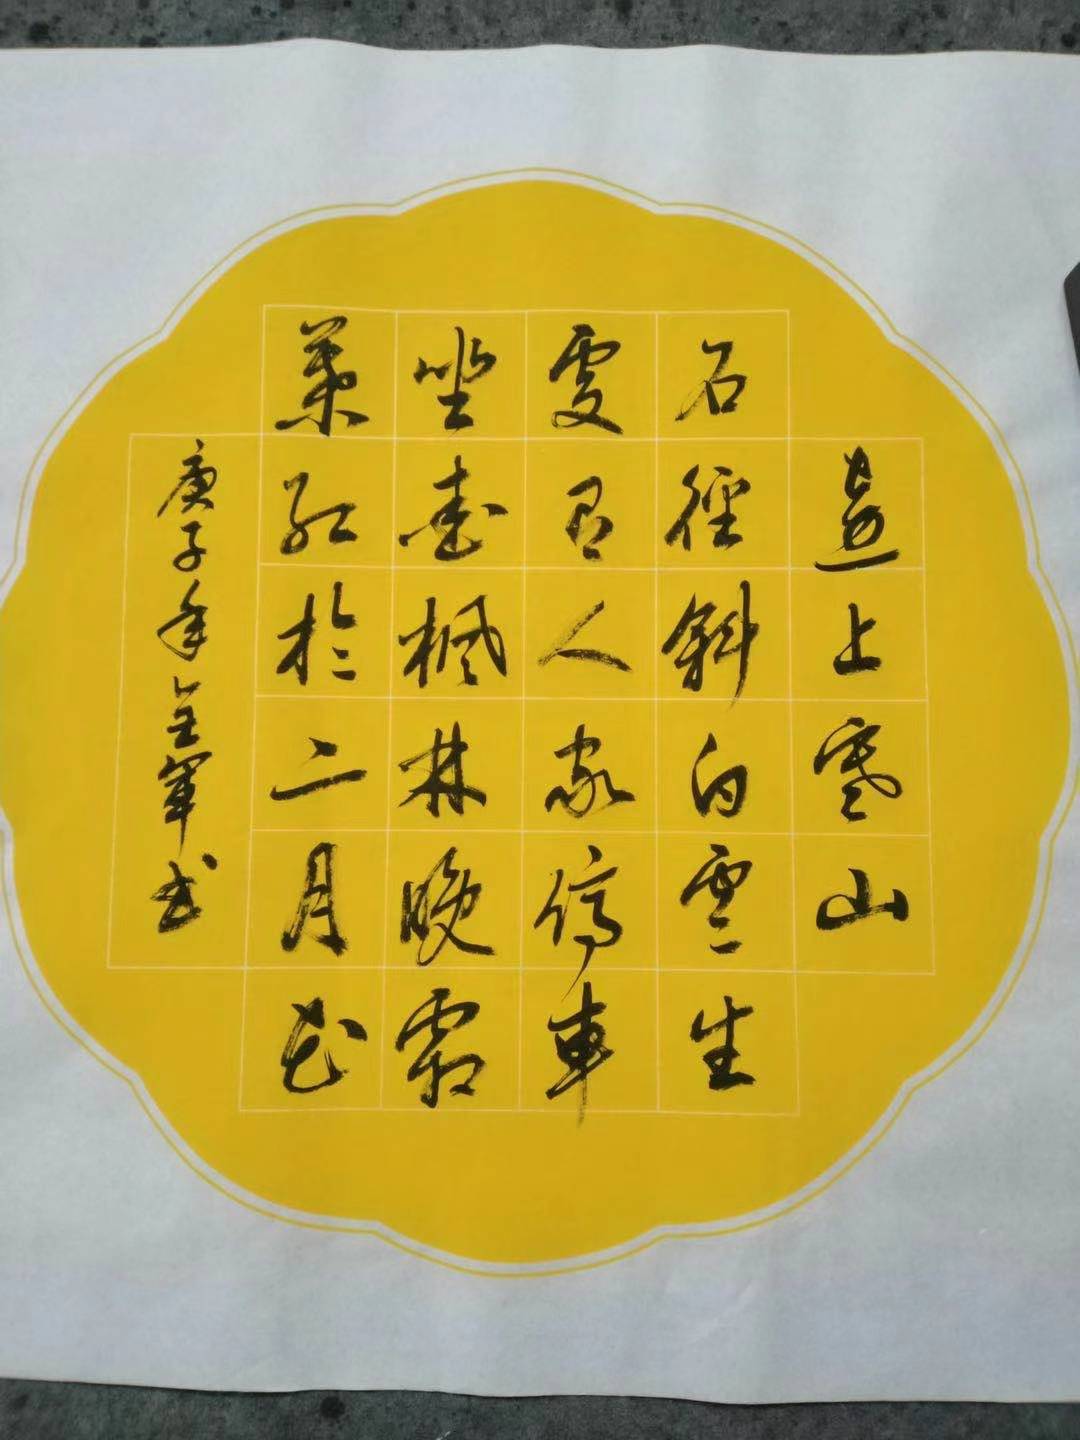 遠上寒山
石徑斜白雲生
處有人家停車
坐愛楓林晚霜
葉紅於二月花
庚子年全軍书